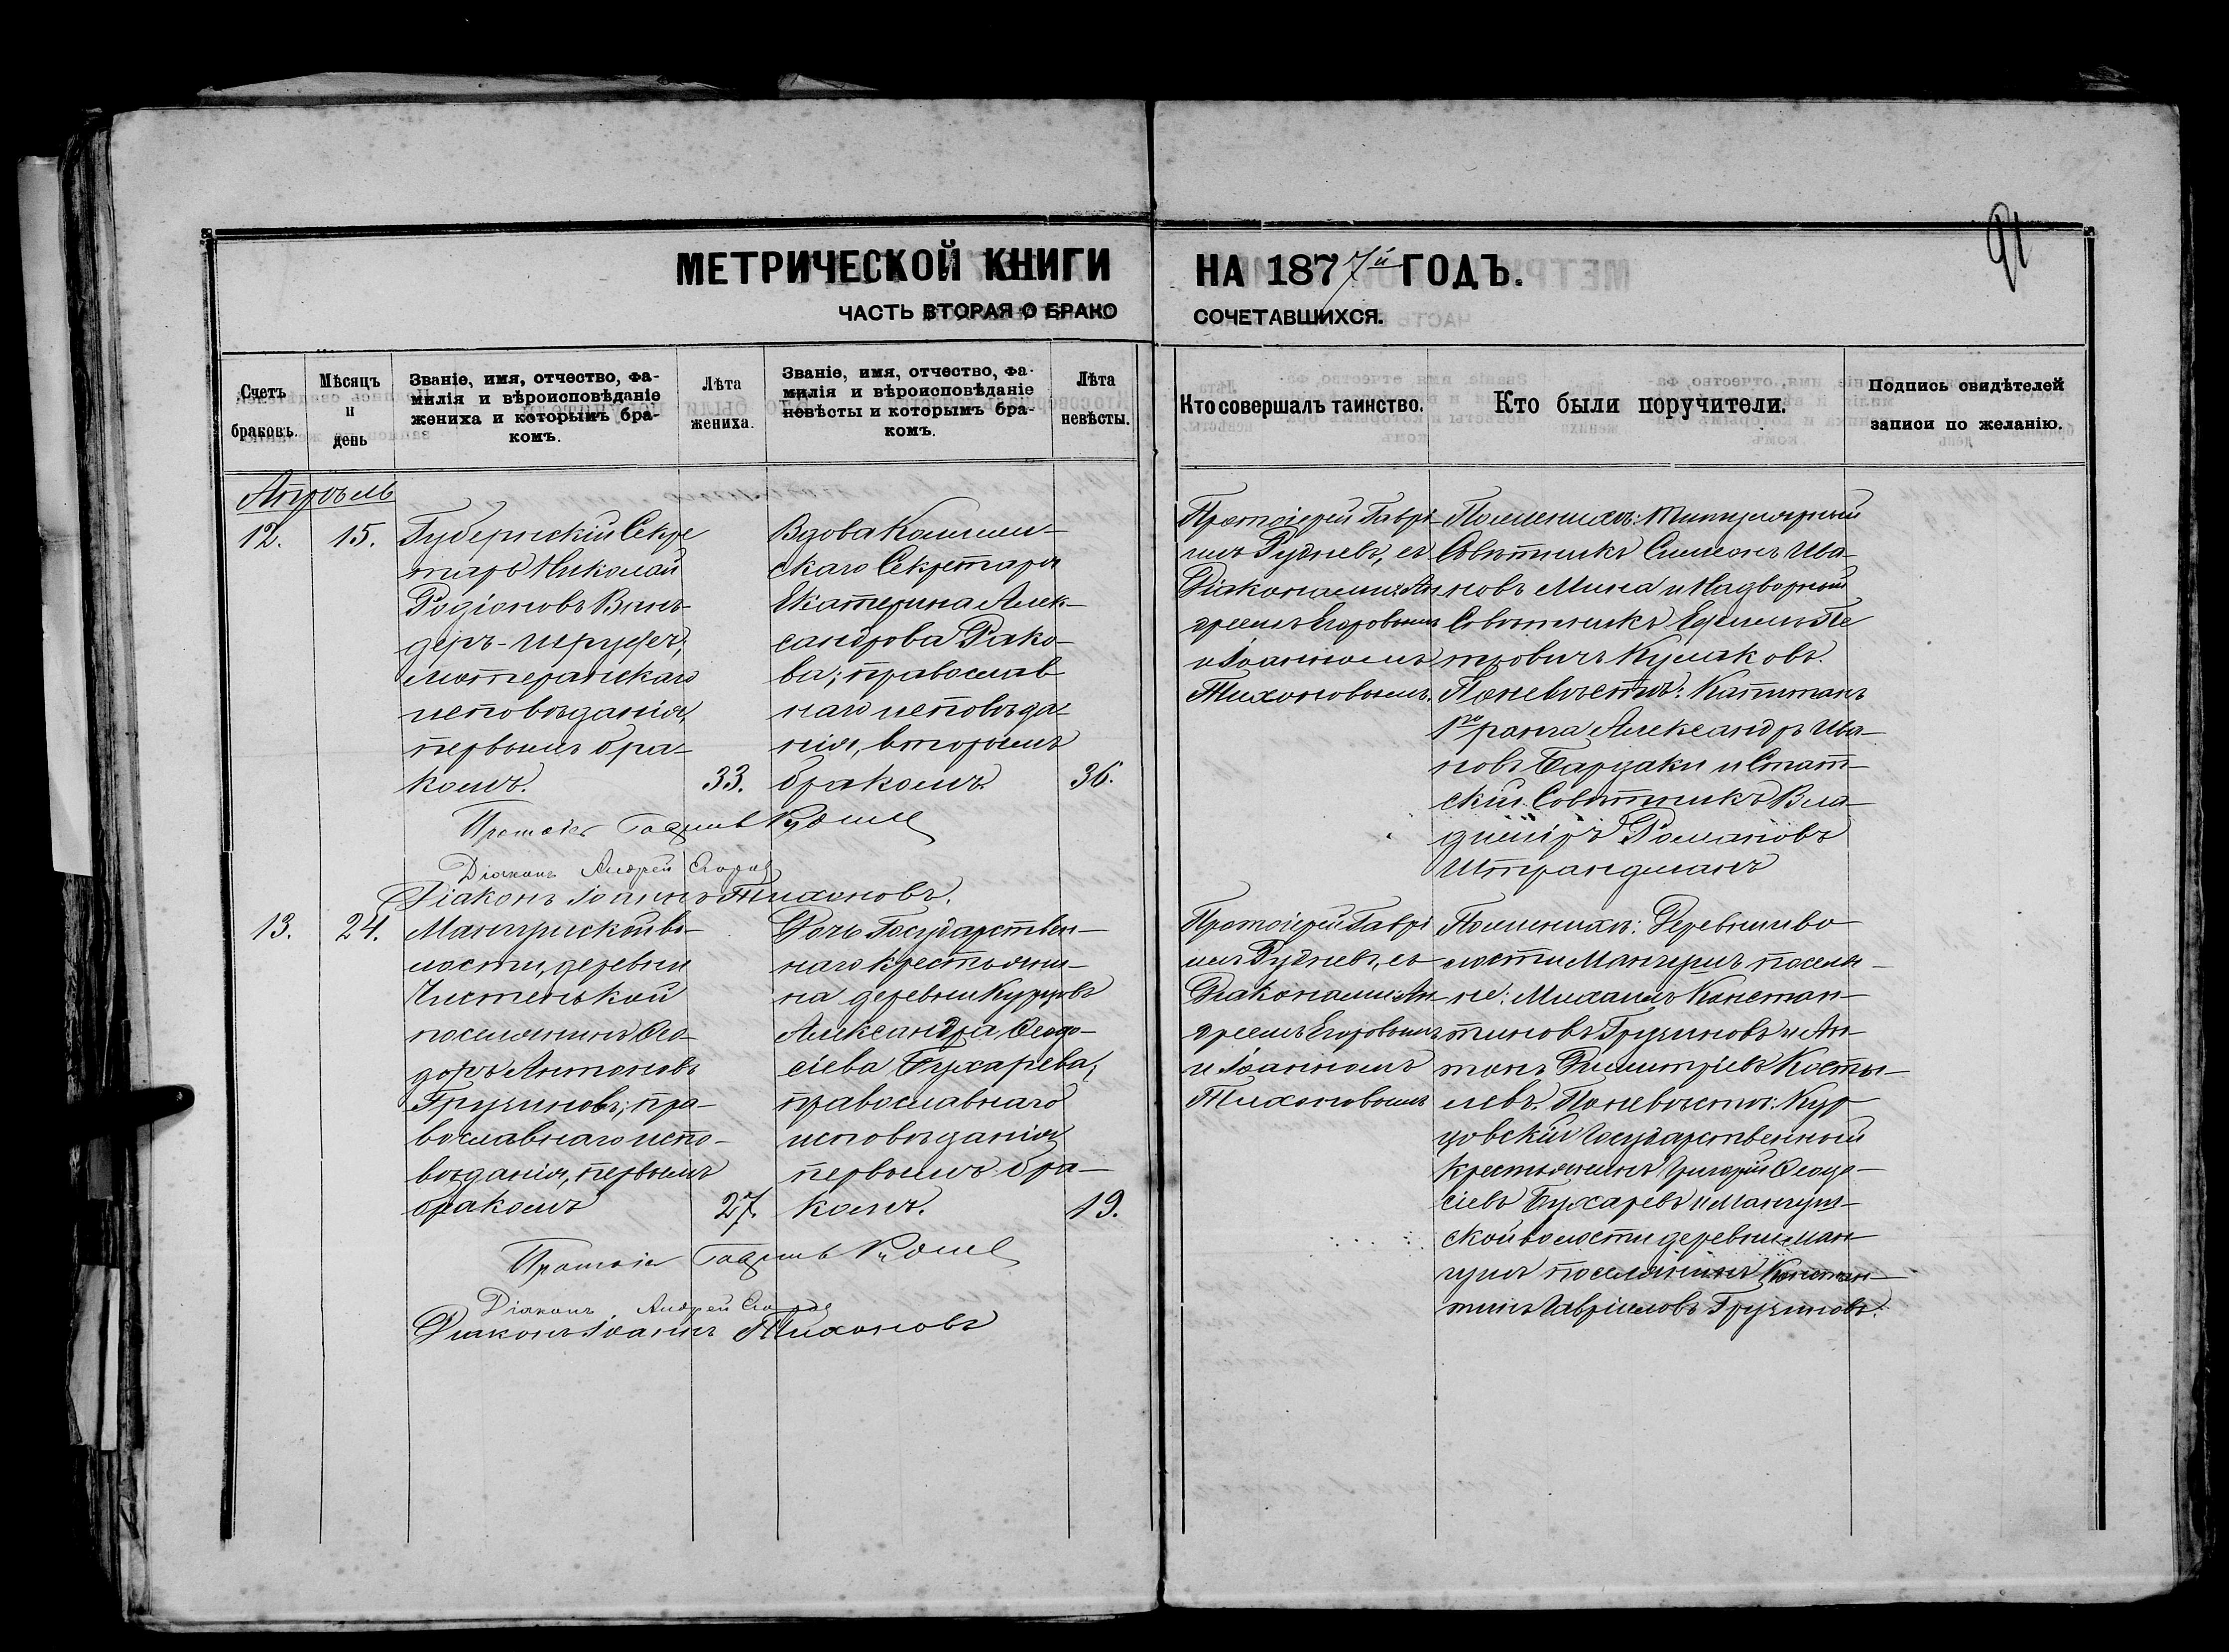 91
МЕТРИЧЕСКОЙ КНИГИ НА 1877й ГОДЪ.
ЧАСТЬ ВТОРАЯ О БРАКО СОЧЕТАВШИХСЯ.
Счетъ
браковъ.
Мѣсяцъ
и
день
Званіе, имя, отчество, фа-
милія и вѣроисповѣданіе
жениха и которымъ бра-
комъ.
Лѣта
жениха.
Званіе, имя, отчество, фа-
милія и вѣроисповѣданіе
невѣсты и которымъ бра-
комъ.
Лѣта
невѣсты.
Кто совершалъ таинство.
Кто были поручители.
Подпись свидѣтелей
записи по желанію.
Апрѣль
12.
15.
Губернскій Секре
тарь Николай
Родіоновъ
лютеранскаго
исповѣданія,
первымъ бра-
комъ.
33.
Вдова
скаго Секретаря
Екатерина Алек-
сандрова Рако-
ва; православ
наго исповѣда-
нія, вторымъ
бракомъ.
36.
Протоіерей Гаврі-
илъ Рудневъ, съ
Діаконами: Ан
дреемъ Егоровымъ
и Іоанномъ
Тихоновымъ.
По женихѣ: Титулярный
Совѣтникъ Симеонъ Ива-
новъ Мина и Надворный
Совѣтникъ Ефимъ Пе
тровичъ Кулаковъ.
По невѣстѣ: Капитанъ
1го ранга Александръ Ива-
новъ Бардаки и Стат-
скій Совѣтникъ Вла-
диміръ Романовъ
Штрандманъ
Гавріилъ Руднев
Діаконъ Андрей Егоров
Діаконъ Іоаннъ Тихоновъ.
13.
24.
Мангушской во-
лости, деревни
Чистенькой
поселянинъ Ѳео-
доръ Антоновъ
Грузиновъ; пра-
вославнаго испо-
вѣданія, первымъ
бракомъ
27.
Дочь Государствен-
наго крестьяни-
на деревни Курцовъ
Александра Ѳеодо-
сіева Бухарева,
православнаго
исповѣданія
первымъ бра-
комъ.
19.
Протоіерей Гаврі
илъ Рудневъ, съ
Діаконами: Ан-
дреемъ Егоровымъ
и Іоанномъ
Тихоновымъ
По женихѣ: Деревни и во
лости Мангушъ поселя-
не: Михаилъ Констан-
тиновъ Грузиновъ и Ан-
тонъ Димитріевъ Косты-
левъ. По невѣстѣ: Кур
цовскій Государственный
крестьянинъ Григорій Ѳеодо-
сіевъ Бухаревъ и Мангуш-
ской волости деревни Ман
гушъ поселянинъ Констан-
тинъ Гавріиловъ Грузиновъ.
Гавріилъ Руднев
Діаконъ Андрей Егоров
Діаконъ Іоаннъ Тихоновъ